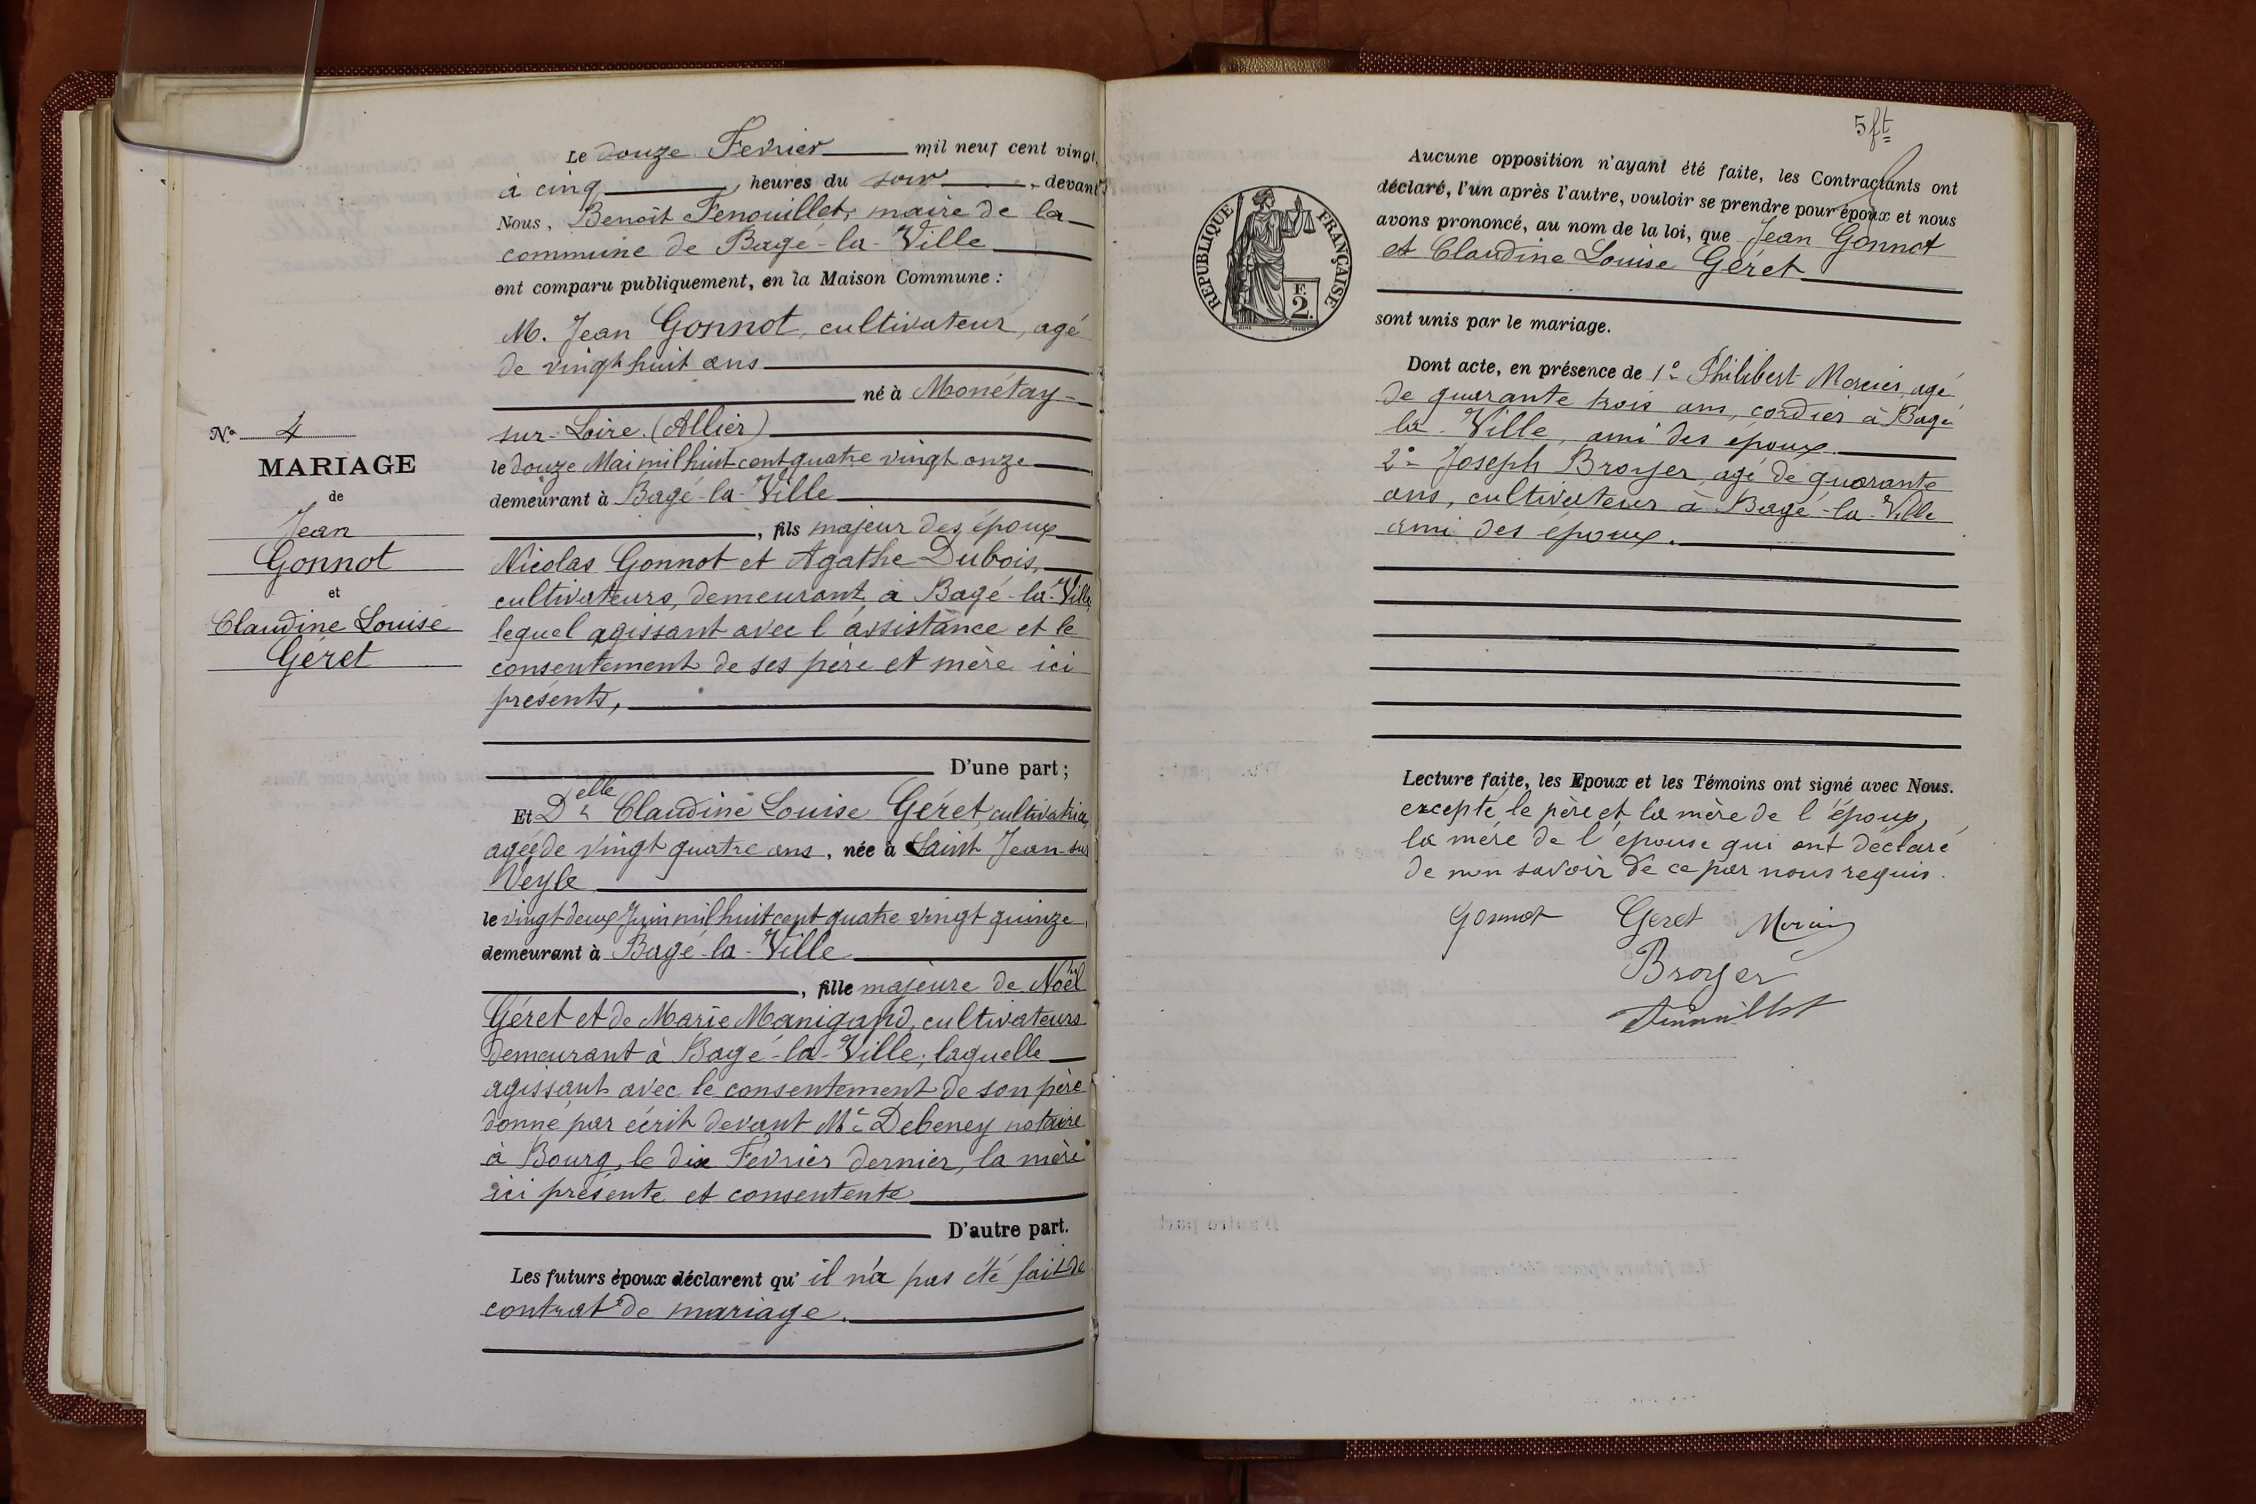 Le douze Fevrier mil neuf cent vingt,
à cinq heures du soir, devant
Nous, Benoît Fenouillet, maire de la
commune de Bagé-la-Ville
ont comparu publiquement, en la Maison Commune :
M. Jean Gonnot, cultivateur, agé
de vingt huit ans
né à Monétay-
sur-Loire (Allier)
le douze Mai mil huit cent quatre vingt onze
demeurant à Bagé-la-Ville
, fils majeur des époux
Nicolas Gonnot et Agathe Dubois,
cultivateurs, demeurant à Bagé-la-Ville,
lequel agissant avec l'assistance et le
consentement de ses père et mère ici
présents,
D'une part ;
Nº 4
MARIAGE
de
Jean
Gonnot
et
Claudine Louise
Géret
Et Delle Claudine Louise Géret, cultivatrice,
agée de vingt quatre ans, née à Saint Jean-sur
Veyle
le vingt deux Juin mil huit cent quatre vingt quinze,
demeurant à Bagé-la-Ville
, fille majeure de Noël
Géret et de Marie Manigand, cultivateurs
demeurant à Bagé-la-Ville; laquelle
agissant avec le consentement de son père
donné par écrit devant Me Debeney notaire
à Bourg, le dix Fevrier dernier, la mère
ici présente et consentente
D'autre part.
Les futurs époux déclarent qu'il n'a pas été fait de
contrat de mariage.
5 ft
RÉPUBLIQUE FRANÇAISE
F.
2.
Aucune opposition n'ayant été faite, les Contractants ont
déclaré, l'un après l'autre, vouloir se prendre pour époux et nous
avons prononcé, au nom de la loi, que Jean Gonnot
et Claudine Louise Géret
sont unis par le mariage.
Dont acte, en présence de 1º Philibert Morier, agé
de quarante trois ans, cordier à Bagé
la-Ville, ami des époux
2º Joseph Broyer, agé de quarante
ans, cultivateur à Bagé-la-Ville
ami des époux.
Lecture faite, les Epoux et les Témoins ont signé avec Nous.
excepté le père et la mère de l'époux,
la mère de l'épouse qui ont déclaré
de non savoir de ce par nous requis.
Gonnot Geret
Broyer
Fenouillet